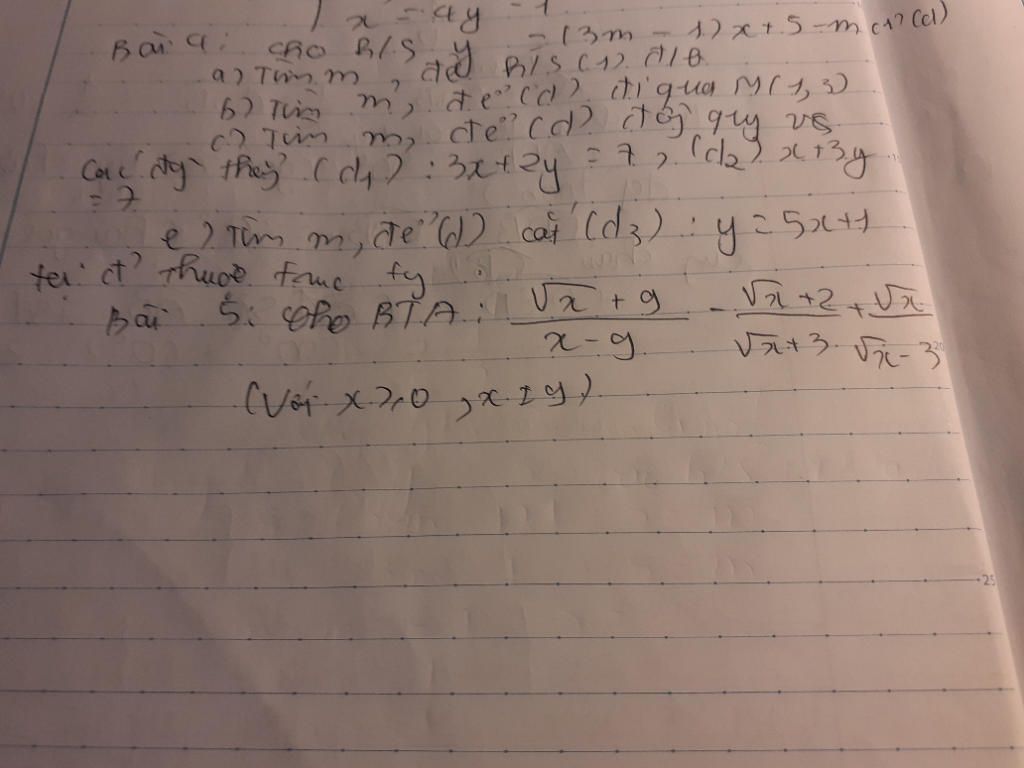 ) x = 4y - 1
Bài 4: cho B/S y = (3m - 1) x + 5 - m (1) (d)
a) Tìm m, để B/S (1) đ/B
b) Tìm m, để (d) đi qua M(1, 3)
c) Tìm m, để (d) đồng quy với
các đg thẳg (d1) : 3x + 2y = 7, (d2) x + 3y
= 7
e) Tìm m, để (d) cắt (d3) : y = 5x + 1
tại đ' thuộc trục ty
Bài 5: cho BTA : (√x + 9)/(x - 9) - (√x + 2)/(√x + 3) + √x/(√x - 3)
(Với x ≥ 0, x ≠ 9)
25